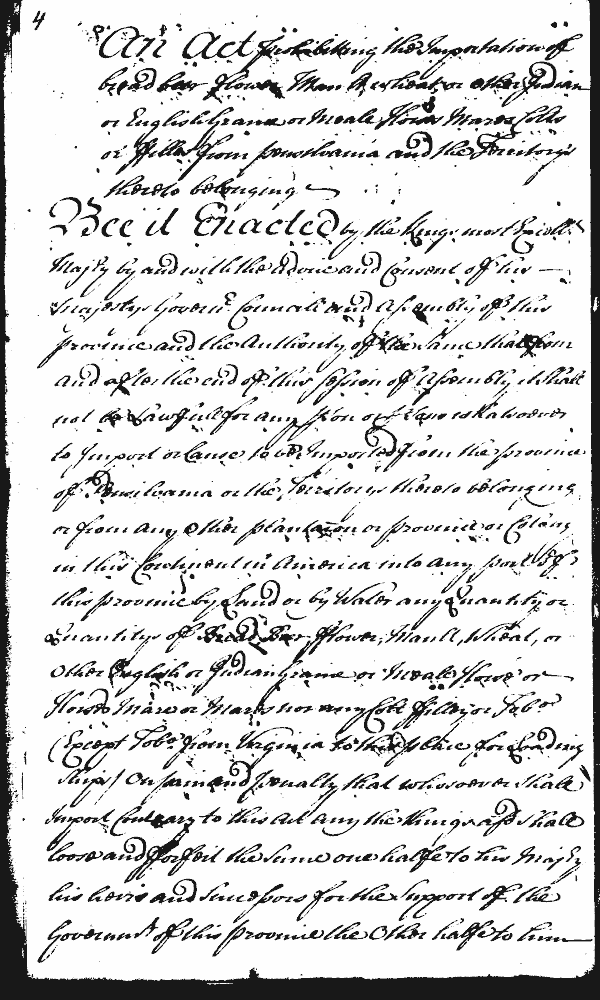 4
An Act prohibiting the Importation of
bread beer flower Mault wheat or other Indian
or English Graine or Meale Horse Mares Colts
or ffillies from pensilvania and the Territorys
thereto belonging
Bee it Enacted by the Kings most Excellt
Majty by and with the advice and Consent of his
Majestys Governr Councill and Assembly of this
province and the Authority of the same that from
and after the end of this Session of Assembly it shall
not be Lawfull for any pson or psons whatsoever
to Import or Cause to be Imported from the province
of Pensilvania or the Territorys thereto belonging
or from any other plantacon or province or Colony
in this Continent in America into any part of
this province by Land or by Water any Quantity or
Quantitys of Bread Beer, fflower, Mault, Wheat, or
Other English or Indian Graine or Meale Horse or
Horses Mare or Mares nor any Colt ffilley or Tobo
(Except Tobo from Virginia to this place for Loading
Ships) On pain and penalty that whosoever shall
import Contrary to this Act any the things afsd shall
loose and fforfeit the same one halfe to his Majty
his heirs and Successors for the Support of the
Governmt of this province the Other halfe to him